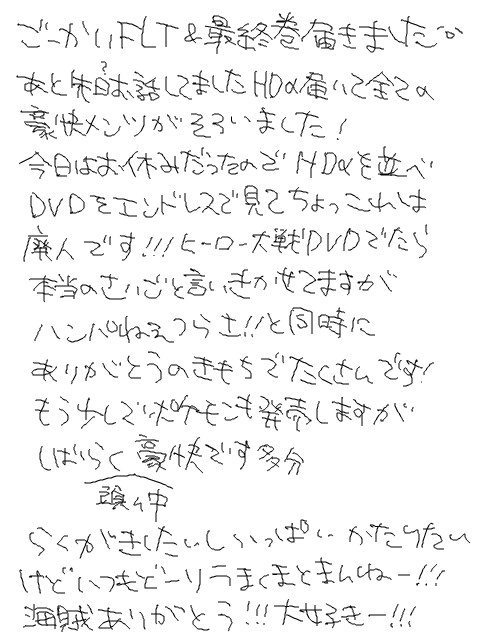 ごーかいFLT&最終巻届きました
?
あと先日お話してましたHDα届いて全ての
豪快メンツがそろいました!
今日はお休みだったのでHDαを並べ
DVDをエンドレスで見てちょっこれは
廃人です!!!ヒーロー大戦DVDでたら
本当のさいごと言いきかせてますが
ハンパねぇつらさ!!と同時に
ありがとうのきもちでたくさんです!
もう少しでポケモンも発売しますが
しばらく豪快です多分
頭ん中
らくがきしたいしいっぱいかたりたい
けどいつもどーりうまくまとまんねー!!!
海賊ありがとう!!!大好きー!!!